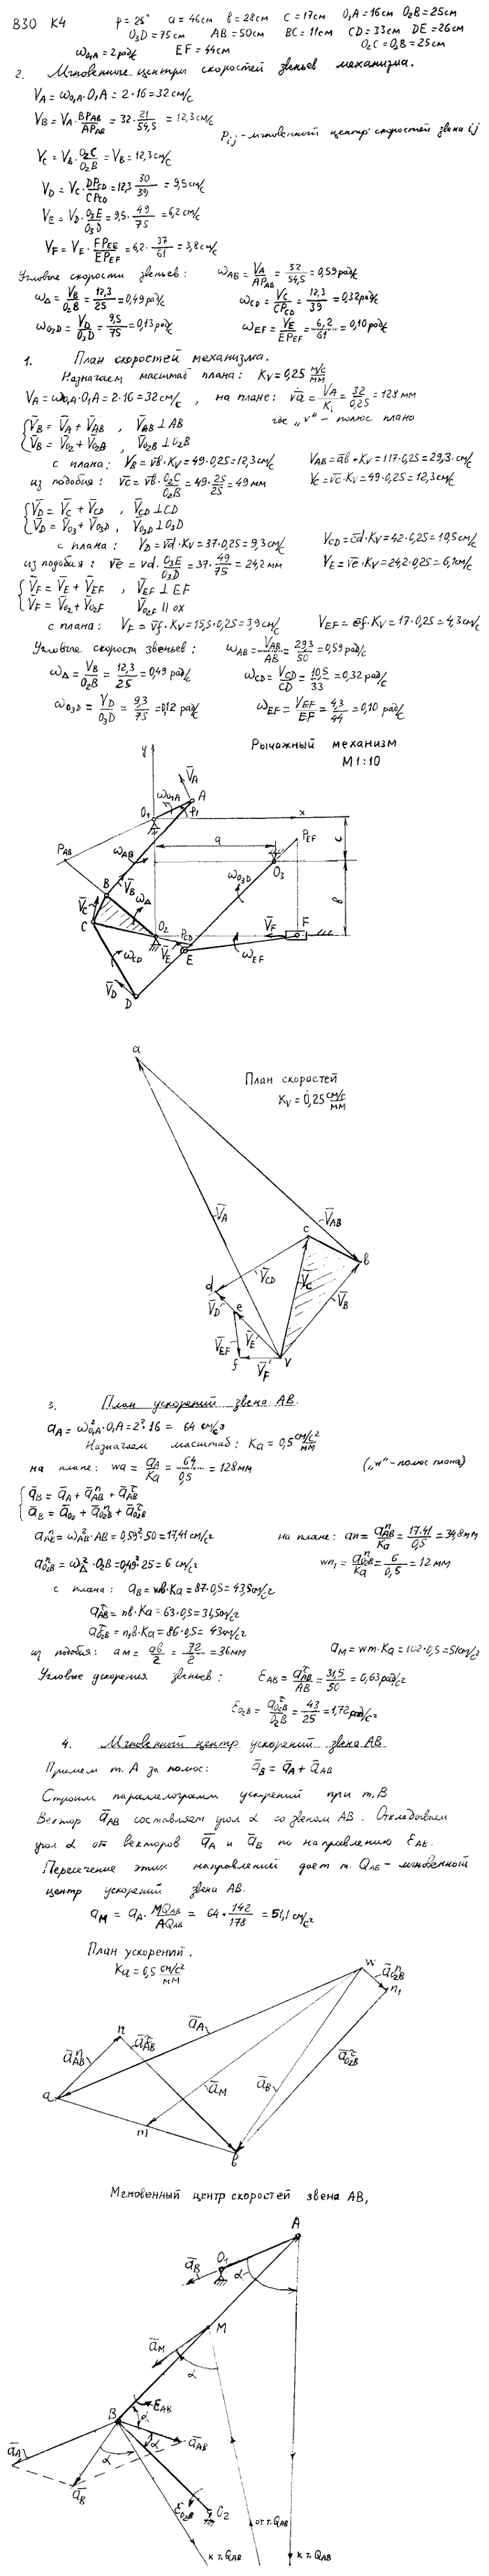 В30 К4 φ=25° a=46см в=28см c=17см O₁A=16см O₂B=25см
O₃D=75см AB=50см BC=11см CD=33см DE=26см
ω₀₁A=2рад/с EF=44см O₂C=O₂B=25см
2. Мгновенные центры скоростей звеньев механизма.
V_A=ω₀₁A·O₁A=2·16=32см/с
V_B=V_A·BP_AB/AP_AB=32·21/54,5=12,3см/с
P_ij-мгновенный центр скоростей звена ij
V_C=V_B·O₂C/O₂B=V_B=12,3см/с
V_D=V_C·DP_CD/CP_CD=12,3·30/39=9,5см/с
V_E=V_D·O₃E/O₃D=9,5·49/75=6,2см/с
V_F=V_E·FP_EF/EP_EF=6,2·37/61=3,8см/с
Угловые скорости звеньев: ω_AB=V_A/AP_AB=32/54,5=0,59рад/с
ω_Δ=V_B/O₂B=12,3/25=0,49рад/с ω_CD=V_C/CP_CD=12,3/39=0,32рад/с
ω_O₃D=V_D/O₃D=9,5/75=0,13рад/с ω_EF=V_E/EP_EF=6,2/61=0,10рад/с
1. План скоростей механизма.
Назначаем масштаб плана: K_V=0,25 м/с/мм
V_A=ω₀₁A·O₁A=2·16=32см/с, на плане: v̅a̅=V_A/K_i=32/0,25=128мм
{V̅_B=V̅_A+V̅_AB, V̅_AB⊥AB где „v“-полюс плана
{V̅_B=V̅_O2+V̅_O2A, V̅_O2B⊥O₂B
с плана: V_B=v̅в̅·K_V=49·0,25=12,3см/с V_AB=a̅в̅·K_V=117·0,25=29,3см/с
из подобия: v̅c̅=v̅в̅·O₂C/O₂B=49·25/25=49мм V_C=v̅c̅·K_V=49·0,25=12,3см/с
{V̅_D=V̅_C+V̅_CD, V̅_CD⊥CD
{V̅_D=V̅_O3+V̅_O3D, V̅_O3D⊥O₃D
с плана: V_D=v̅d̅·K_V=37·0,25=9,3см/с V_CD=c̅d̅·K_V=42·0,25=10,5см/с
из подобия: v̅e̅=vd·O₃E/O₃D=37·49/75=24,2мм V_E=v̅e̅·K_V=24,2·0,25=6,1см/с
{V̅_F=V̅_E+V̅_EF, V̅_EF⊥EF
{V̅_F=V̅_O2+V̅_O2F, V̅_O2F∥ox
с плана: V_F=v̅f̅·K_V=15,5·0,25=3,9см/с V_EF=e̅f̅·K_V=17·0,25=4,3см/с
Угловые скорости звеньев: ω_AB=V_AB/AB=29,3/50=0,59рад/с
ω_Δ=V_B/O₂B=12,3/25=0,49рад/с ω_CD=V_CD/CD=10,5/33=0,32рад/с
ω_O₃D=V_D/O₃D=9,3/75=0,12рад/с ω_EF=V_EF/EF=4,3/44=0,10рад/с
Рычажный механизм
М1:10
y
V̅_A
A
ω_O₁A
O₁
φ₁
x
P_AB
ω_AB
a
P_EF
c
O₃
B
V̅_B
ω_O₃D
V̅_C
ω_Δ
в
C
O₂
P_CD
V̅_F
F
V̅_E
E
ω_EF
ω_CD
V̅_D
D
a
План скоростей
K_V=0,25 см/с/мм
V̅_A
V̅_AB
c
в
V̅_CD
V̅_C
d
V̅_B
V̅_D
e
V̅_E
V̅_EF
f
V̅_F
v
3. План ускорений звена AB.
a_A=ω²₀₁A·O₁A=2²·16=64 см/с²
Назначаем масштаб: K_a=0,5 см/с²/мм
на плане: wa=a_A/K_a=64/0,5=128мм („w“-полюс плана)
{a̅_B=a̅_A+a̅ⁿ_AB+a̅^τ_AB
{a̅_B=a̅_O2+a̅ⁿ_O2B+a̅^τ_O2B
aⁿ_AB=ω²_AB·AB=0,59²·50=17,41см/с² на плане: an=aⁿ_AB/K_a=17,41/0,5=34,8мм
aⁿ_O2B=ω²_Δ·O₂B=0,49²·25=6см/с² wn₁=aⁿ_O2B/K_a=6/0,5=12мм
с плана: a_B=wв·K_a=87·0,5=43,5см/с²
a^τ_AB=nв·K_a=63·0,5=31,5см/с²
a^τ_O2B=n₁в·K_a=86·0,5=43см/с²
из подобия: am=ab/2=72/2=36мм a_M=wm·K_a=102·0,5=51см/с²
Угловые ускорения звеньев: ε_AB=a^τ_AB/AB=31,5/50=0,63рад/с²
ε_O2B=a^τ_O2B/O₂B=43/25=1,72рад/с²
4. Мгновенный центр ускорений звена AB
Примем т. A за полюс: a̅_B=a̅_A+a̅_AB
Строим параллелограм ускрений при т.B
Вектор a̅_AB составляет угол α со звеном AB. Откладываем
угол α от векторов a̅_A и a̅_B по направлению ε_AB.
Пересечение этих направлений дает т. Q_AB-мгновенный
центр ускорений звена AB.
a_M=a_A·MQ_AB/AQ_AB=64·142/178=51,1см/с²
План ускорений.
K_a=0,5 см/с²/мм
w
a̅ⁿ_O2B
n₁
a̅_A
n
a̅ⁿ_AB
a̅^τ_AB
a̅_M
a̅_B
a̅^τ_O2B
a
m
в
Мгновенный центр скоростей звена AB,
A
O₁
a̅_B
α
M
a̅_M
α
B
ε_AB
α
a̅_A
a̅_AB
α
α
a̅_B
ε_O2B
O₂
от т.Q_AB
к т.Q_AB
к т.Q_AB